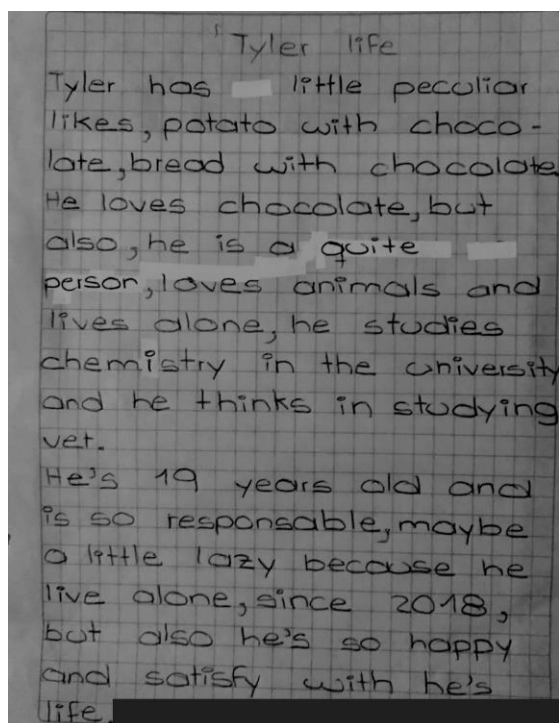 Tyler life
Tyler has little peculiar
likes, potato with choco-
late, bread with chocolate
He loves chocolate, but
also, he is a quite
person, loves animals and
lives alone, he studies
chemistry in the university
and he thinks in studying
vet.
He's 19 years old and
is so responsable, maybe
a little lazy because he
live alone, since 2018,
but also he's so happy
and satisfy with he's
life.